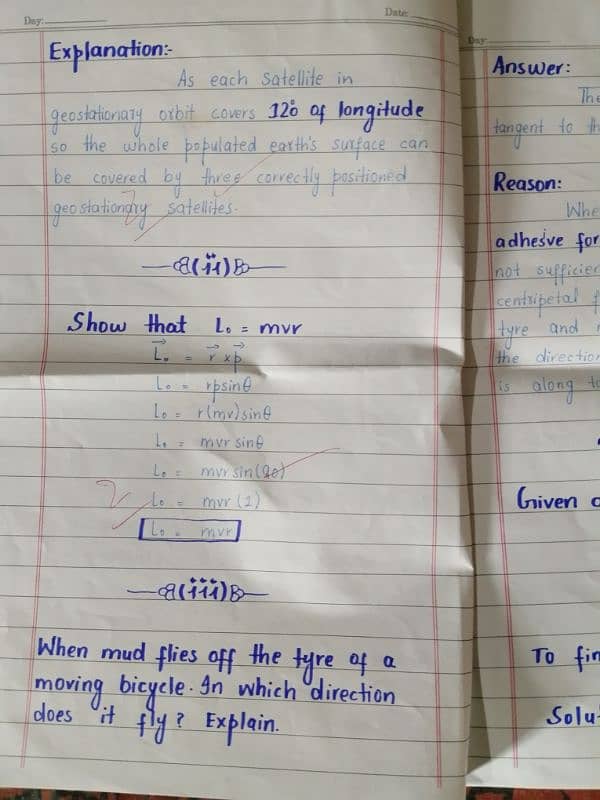 Day:
Date:
Explanation:-
As each satellite in
geostationary orbit covers 120° of longitude
so the whole populated earth's surface can
be covered by three correctly positioned
geostationary satellites.
(ii)
Show that L₀ = mvr
L₀ = r × p
L₀ = rpsinθ
L₀ = r(mv)sinθ
L₀ = mvr sinθ
L₀ = mvr sin(90)
L₀ = mvr (1)
L₀ = mvr
(iii)
When mud flies off the tyre of a
moving bicycle. In which direction
does it fly? Explain.
Day:
Answer:
The
tangent to th
Reason:
Whe
adhesive for
not sufficien
centripetal f
tyre and
the direction
is along ta
Given
To fin
Solu